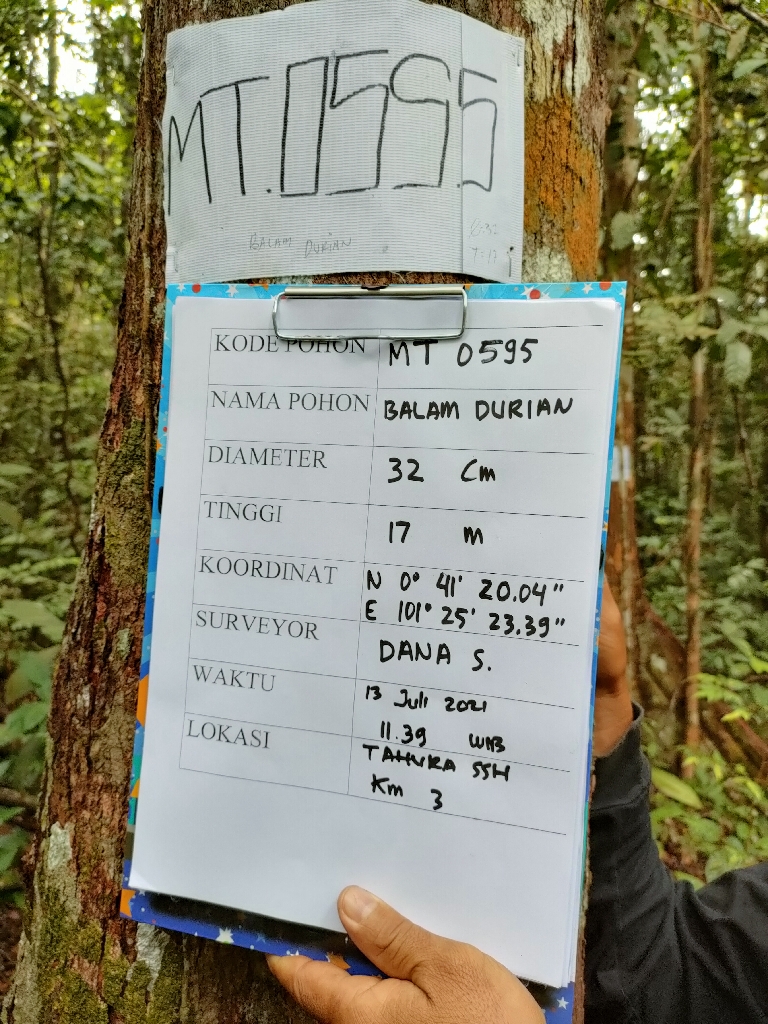 MT.0595
BALAM DURIAN
Ø:32
T:17
KODE POHON MT 0595
NAMA POHON BALAM DURIAN
DIAMETER 32 Cm
TINGGI 17 m
KOORDINAT N 0° 41' 20.04"
E 101° 25' 23.39"
SURVEYOR DANA S.
WAKTU 13 Juli 2021
11.39 WIB
LOKASI TAHURA SSH
Km 3